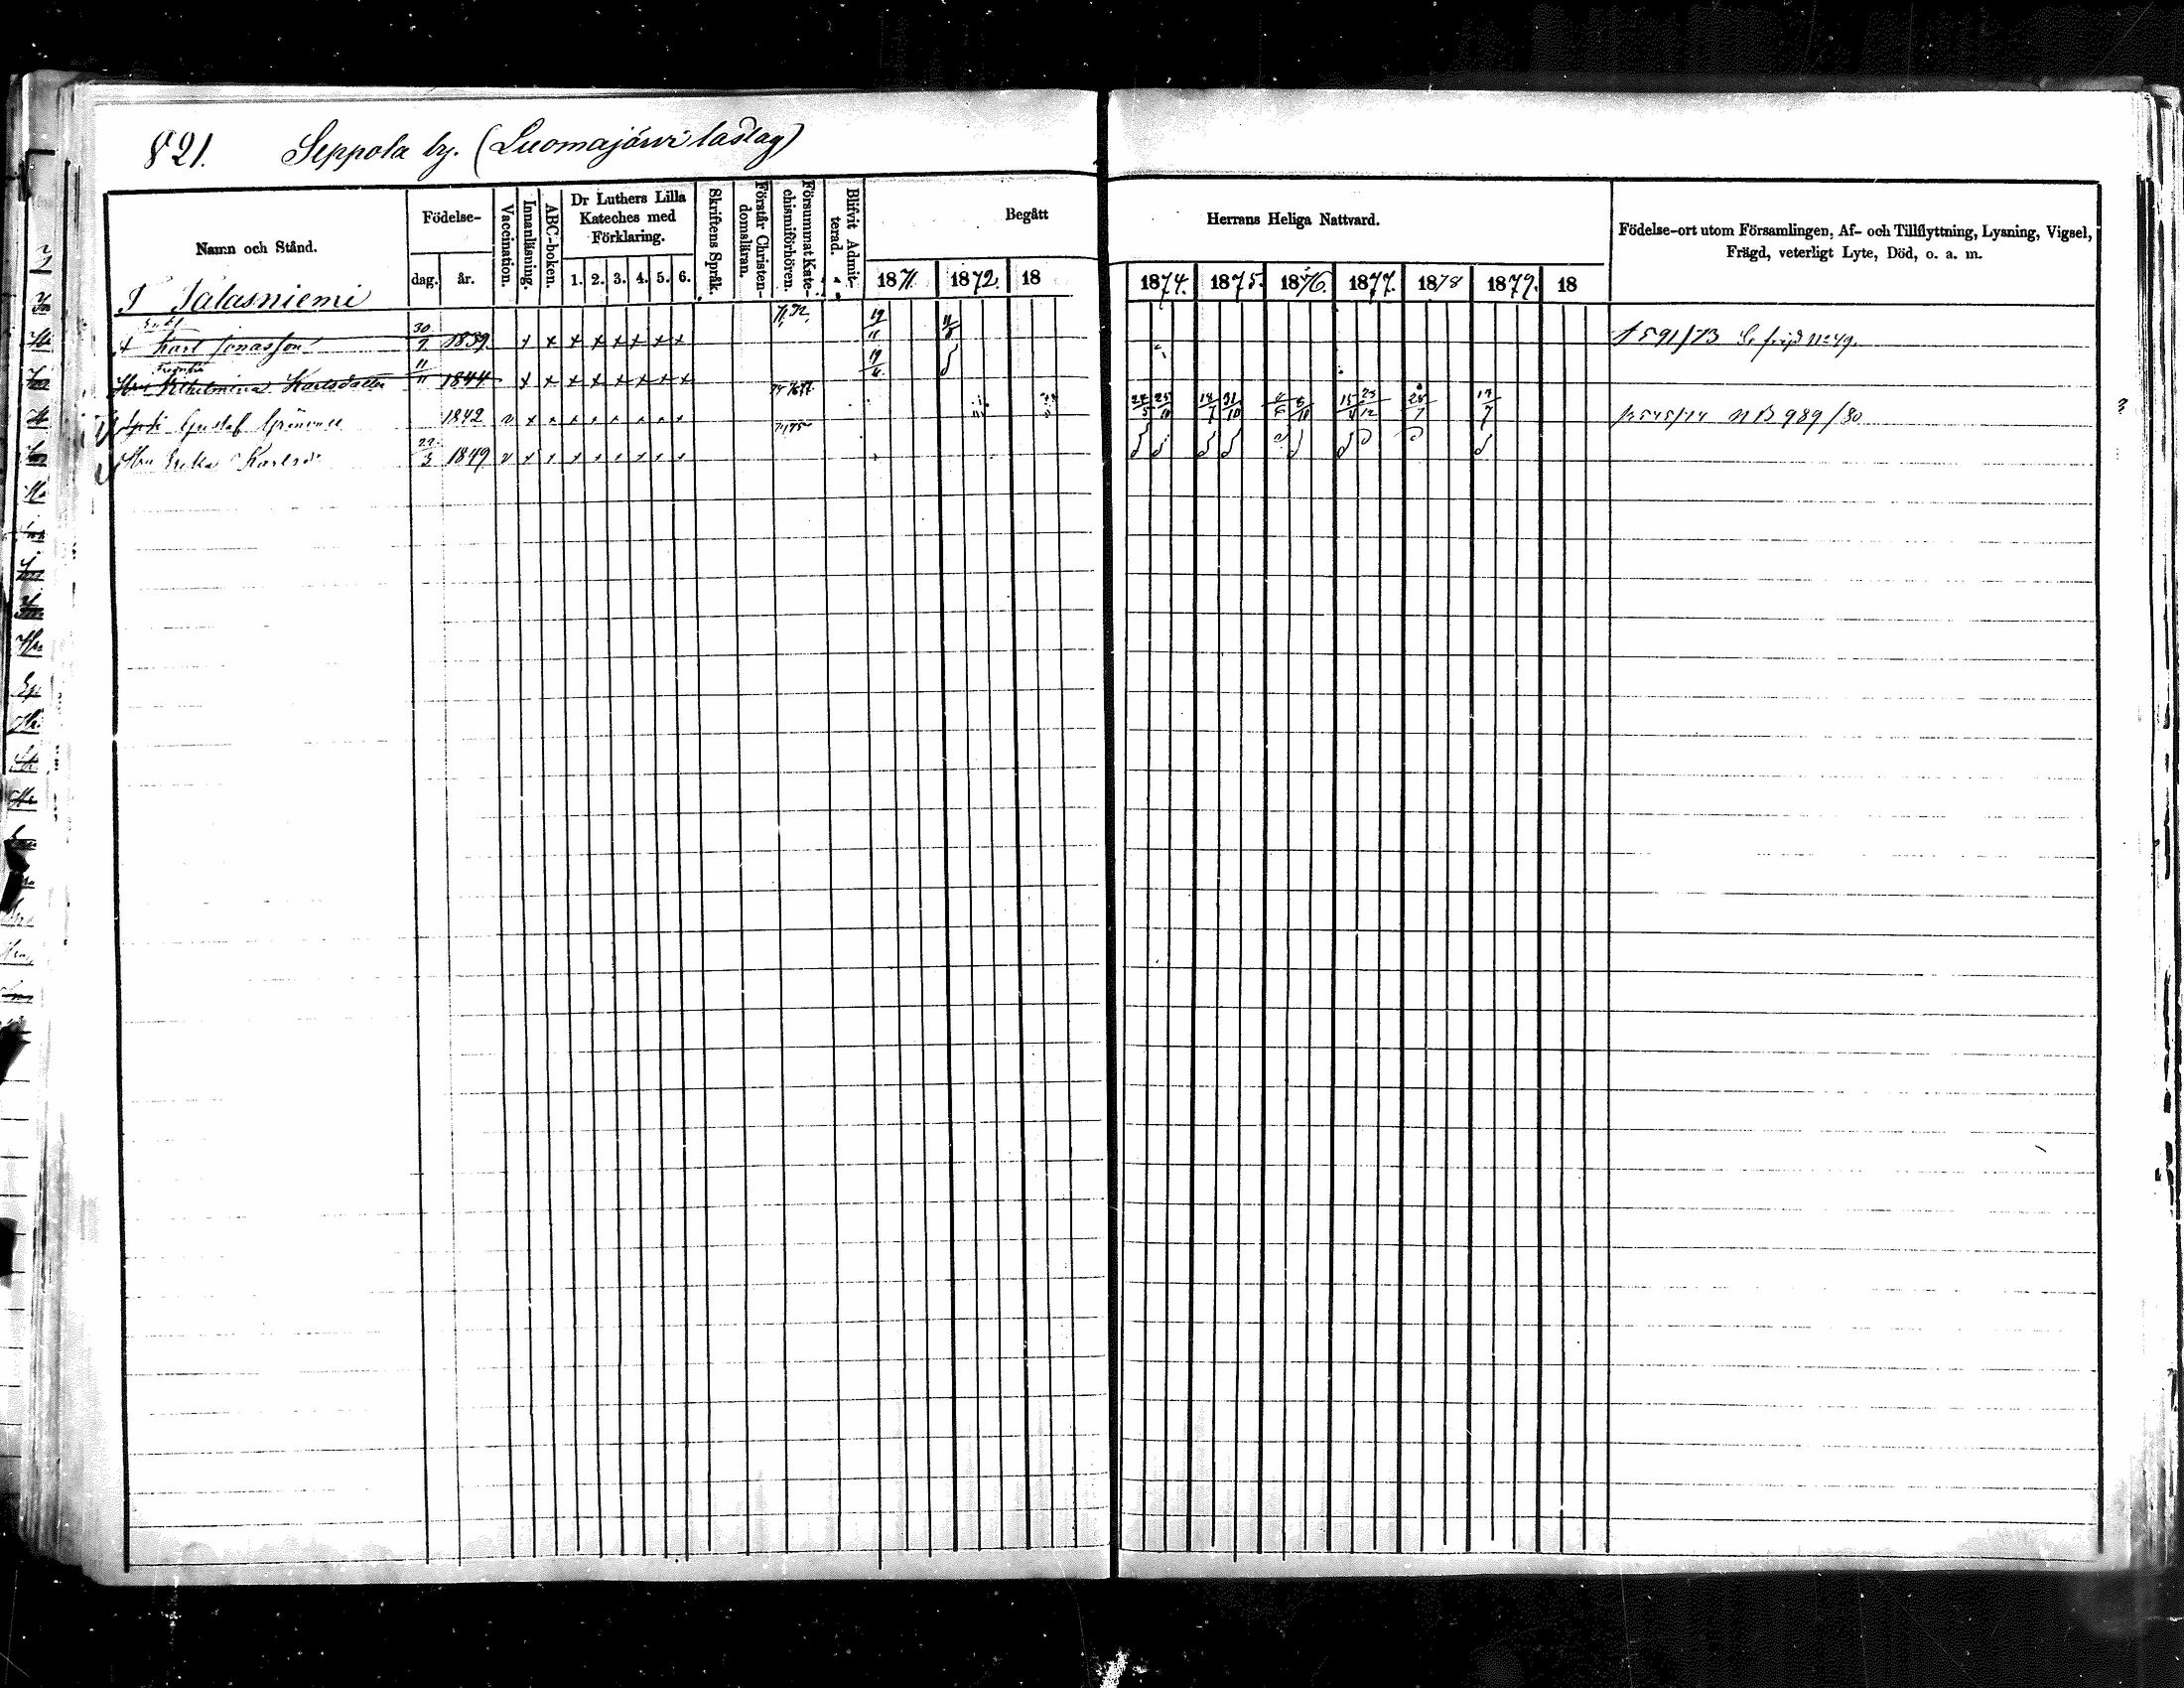 821. Seppola by. (Luomajärvi laslag)
Namn och Stånd.
Födelse-
dag. år.
Vaccination.
Innanläsning.
ABC-boken.
Dr Luthers Lilla Kateches med Förklaring.
1. 2. 3. 4. 5. 6.
Skriftens Språk.
Förstår Christen-domsläran.
Försummat Kate-chismiförhören.
Blifvit Admit-terad.
Begått
1871. 1872. 18
Herrans Heliga Nattvard.
1874. 1875. 1876. 1877. 1878 1879. 18
Födelse-ort utom Församlingen, Af- och Tillflyttning, Lysning, Vigsel,
Frägd, veterligt Lyte, Död, o. a. m.
T Salasniemi
Karl Jonasson 30 1839 x x x x x x x x 71, 72, 19/11 591/73
Hru Vilhelmina Karlsdotter 11/11 1844 x x x x x x x x
Gustaf 1842 v x x x x x x x x 545/74 NB 989/80
Hru Erika Karlsd 22/3 1849 v x x x x x x x x